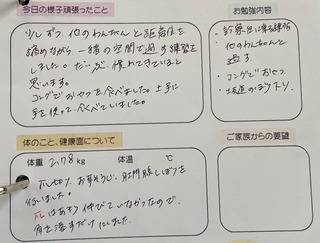 今日の様子頑張ったこと
少しずつ、他のわんちゃんと距離を
縮めながら、一緒の空間で過す練習を
しました。だいぶ、慣れてきていると
思います。
コングでおやつを食べました。上手に
手を使って食べていました。
お勉強内容
・診察台に乗る練習
・他のわんちゃんと
過ごす
・コングでおやつ
・坂道のぼり下り
体のこと、健康面について
体重 2.78kg 体温 ℃
爪切り、お耳そうじ、肛門腺しぼりを
行いました。
爪はあまり伸びていなかったので、
角を落すだけにしました。
ご家族からの要望